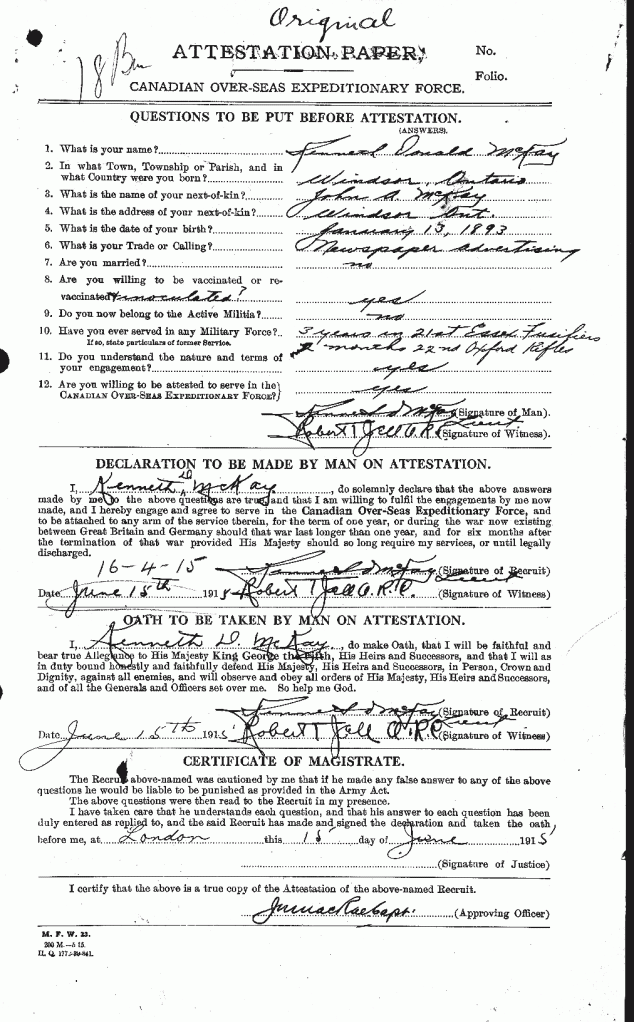 Original
18 Bn
ATTESTATION PAPER,
No.
Folio.
CANADIAN OVER-SEAS EXPEDITIONARY FORCE.
QUESTIONS TO BE PUT BEFORE ATTESTATION.
(ANSWERS).
1. What is your name? Kenneth Donald McKay
2. In what Town, Township or Parish, and in
what Country were you born? Windsor, Ontario
3. What is the name of your next-of-kin? John A McKay
4. What is the address of your next-of-kin? Windsor Ont.
5. What is the date of your birth? January 13, 1893
6. What is your Trade or Calling? Newspaper advertising
7. Are you married? no
8. Are you willing to be vaccinated or re-
vaccinated & inoculated? yes
9. Do you now belong to the Active Militia? no
10. Have you ever served in any Military Force? 3 years in 21st Essex Fusifiers
If so, state particulars of former Service. 2 months 22nd Oxford Rifles
11. Do you understand the nature and terms of
your engagement? yes
12. Are you willing to be attested to serve in the
CANADIAN OVER-SEAS EXPEDITIONARY FORCE? yes
Kenneth D McKay (Signature of Man).
Robert T Lieut (Signature of Witness).
DECLARATION TO BE MADE BY MAN ON ATTESTATION.
I, Kenneth D McKay, do solemnly declare that the above answers
made by me to the above questions are true, and that I am willing to fulfil the engagements by me now
made, and I hereby engage and agree to serve in the Canadian Over-Seas Expeditionary Force, and
to be attached to any arm of the service therein, for the term of one year, or during the war now existing
between Great Britain and Germany should that war last longer than one year, and for six months after
the termination of that war provided His Majesty should so long require my services, or until legally
discharged.
16-4-15
Kenneth D McKay (Signature of Recruit)
Date June 15th 1915 Robert T Lieut (Signature of Witness)
OATH TO BE TAKEN BY MAN ON ATTESTATION.
I, Kenneth D. McKay, do make Oath, that I will be faithful and
bear true Allegiance to His Majesty King George the Fifth, His Heirs and Successors, and that I will as
in duty bound honestly and faithfully defend His Majesty, His Heirs and Successors, in Person, Crown and
Dignity, against all enemies, and will observe and obey all orders of His Majesty, His Heirs and Successors,
and of all the Generals and Officers set over me. So help me God.
Kenneth D McKay (Signature of Recruit)
Date June 15th 1915 Robert T Lieut (Signature of Witness)
CERTIFICATE OF MAGISTRATE.
The Recruit above-named was cautioned by me that if he made any false answer to any of the above
questions he would be liable to be punished as provided in the Army Act.
The above questions were then read to the Recruit in my presence.
I have taken care that he understands each question, and that his answer to each question has been
duly entered as replied to, and the said Recruit has made and signed the declaration and taken the oath
before me, at London this 15 day of June 1915
(Signature of Justice)
I certify that the above is a true copy of the Attestation of the above-named Recruit.
Capt. (Approving Officer)
M. F. W. 23.
200 M.—5 15.
H. Q. 1772-39-841.